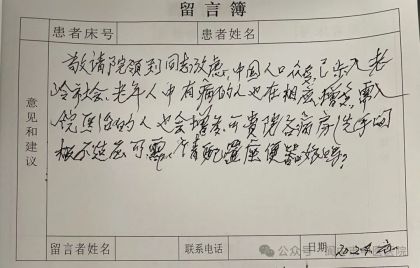 留言簿
患者床号 患者姓名
敬请院领到同志改虑,中国人口众多,已步入老
会,老年人中有病的人也在相应增多,需入
院医治的人也会增多,可贵院各病房洗手间
不适应可需,请配置座便器好吗?
意见和建议
留言者姓名 联系电话 日期
公众号 医院